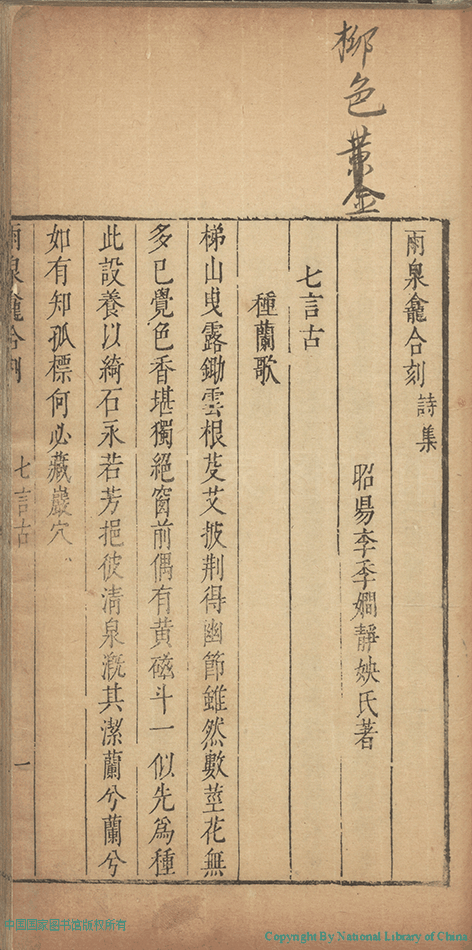 柳色黃金
雨泉龕合刻 詩集
昭陽李季嫺靜姎氏著
七言古
種蘭歌
梯山曳露鋤雲根芟艾披荆得幽節雖然數莖花無
多已覺色香堪獨絕窗前偶有黃磁斗一似先爲種
此設養以綺石永若芳挹彼清泉溉其潔蘭兮蘭兮
如有知孤標何必藏巖穴
雨泉龕合刻 七言古 一
中国国家图书馆版权所有
Copyright By National Library of China